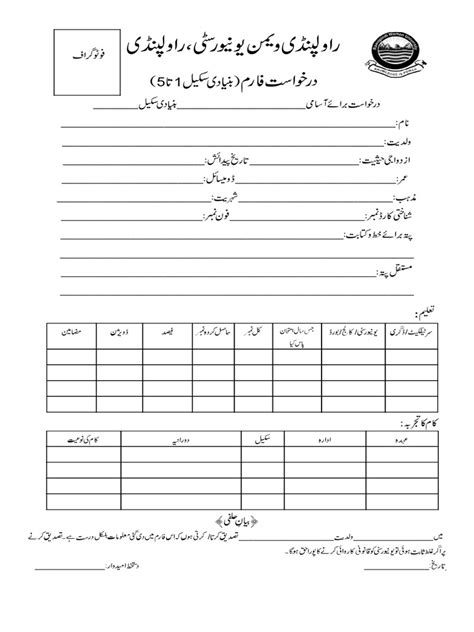 راولپنڈی ویمن یونیورسٹی، راولپنڈی
فوٹو گراف
درخواست فارم (بنیادی سکیل 1 تا 5)
درخواست برائے آسامی ____________ بنیادی سکیل ____________
نام: ____________
ولدیت: ____________
ازدواجی حیثیت: ____________ تاریخ پیدائش: ____________
عمر: ____________ ڈومیسائل: ____________
مذہب: ____________ شہریت: ____________
شناختی کارڈ نمبر: ____________ فون نمبر: ____________
پتہ برائے خط و کتابت: ____________
مستقل پتہ: ____________
تعلیم:
سرٹیفکیٹ/ڈگری یونیورسٹی/کالج/بورڈ جس سال امتحان پاس کیا کل نمبر حاصل کردہ نمبر فیصد ڈویژن مضامین
کام کا تجربہ:
عہدہ ادارہ سکیل دورانیہ کام کی نوعیت
﴿بیان حلفی﴾
میں ____________ ولدیت ____________ تصدیق کرتا/کرتی ہوں کہ اس فارم میں دی گئی معلومات بالکل درست ہے۔ تصدیق کرنے
پر اگر غلط ثابت ہوئی تو یونیورسٹی کو قانونی کاروائی کرنے کا پورا حق ہوگا۔
تاریخ: ____________ دستخط امیدوار: ____________